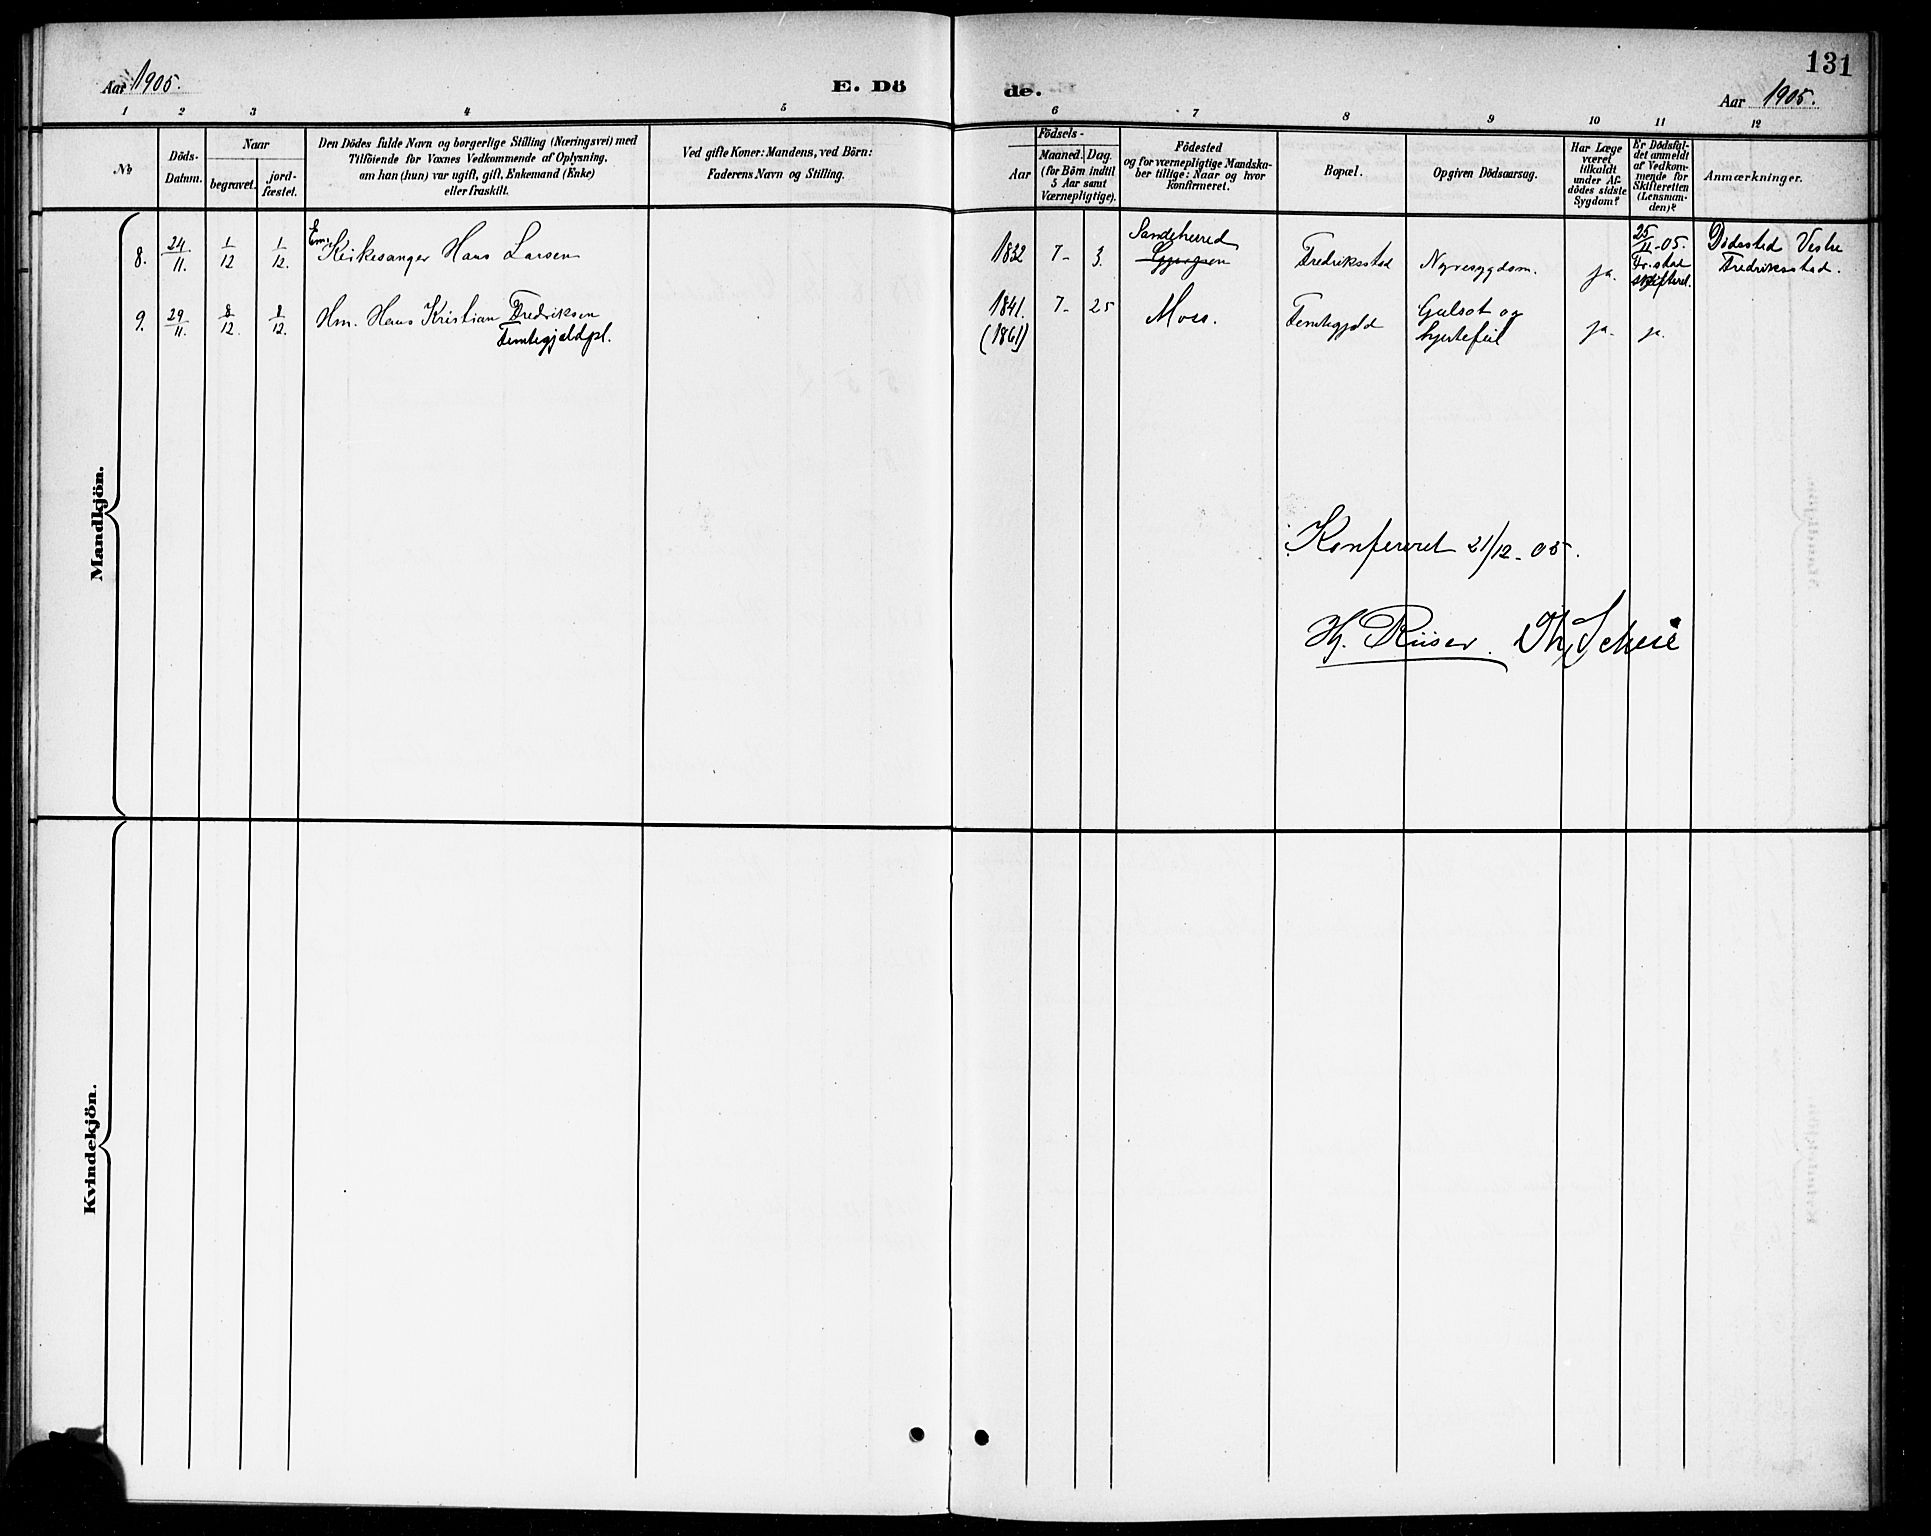 131
Aar 1905.
E. Dö
de.
Aar 1905.
1 2 3 4 5 6 7 8 9 10 11 12
No
Döds-
Datum.
Naar
begravet.
jord-
fæstet.
Den Dödes fulde Navn og borgerlige Stilling (Næringsvei) med
Tilföiende for Voxnes Vedkommende af Oplysning,
om han (hun) var ugift, gift, Enkemand (Enke)
eller fraskilt.
Ved gifte Koner: Mandens, ved Börn:
Faderens Navn og Stilling.
Födsels-
Aar
Maaned.
Dag.
(for Börn indtil
5 Aar samt
Værnepligtige).
Födested
og for værnepligtige Mandska-
ber tillige: Naar og hvor
konfirmeret.
Bopæl.
Opgiven Dödsaarsag.
Har Læge
været
tilkaldt
under Af-
dödes sidste
Sygdom?
Er Dödsfal-
det anmeldt
af Vedkom-
mende for
Skifteretten
(Lensman-
den)?
Anmærkninger.
Mandkjön.
8. 24/11. 1/12 1/12. Em. Kirkesanger Hans Larsen
1832 7- 3. Sandeherred
Fredriksstad Nyresygdom. ja. 25/11-05.
Fr.stad
skifteret.
Dødssted Vestre
Fredriksstad.
9. 29/11. 8/12 8/12. Hm. Hans Kristian Fredriksen
Femtegjeldpl.
1841. 7- 25 Moss. Femtegjeld Gulsot og
(1861) hjertefeil ja. ja.
Konfereret 21/12-05.
Hj. Riiser. Th. Scheie
Kvindekjön.